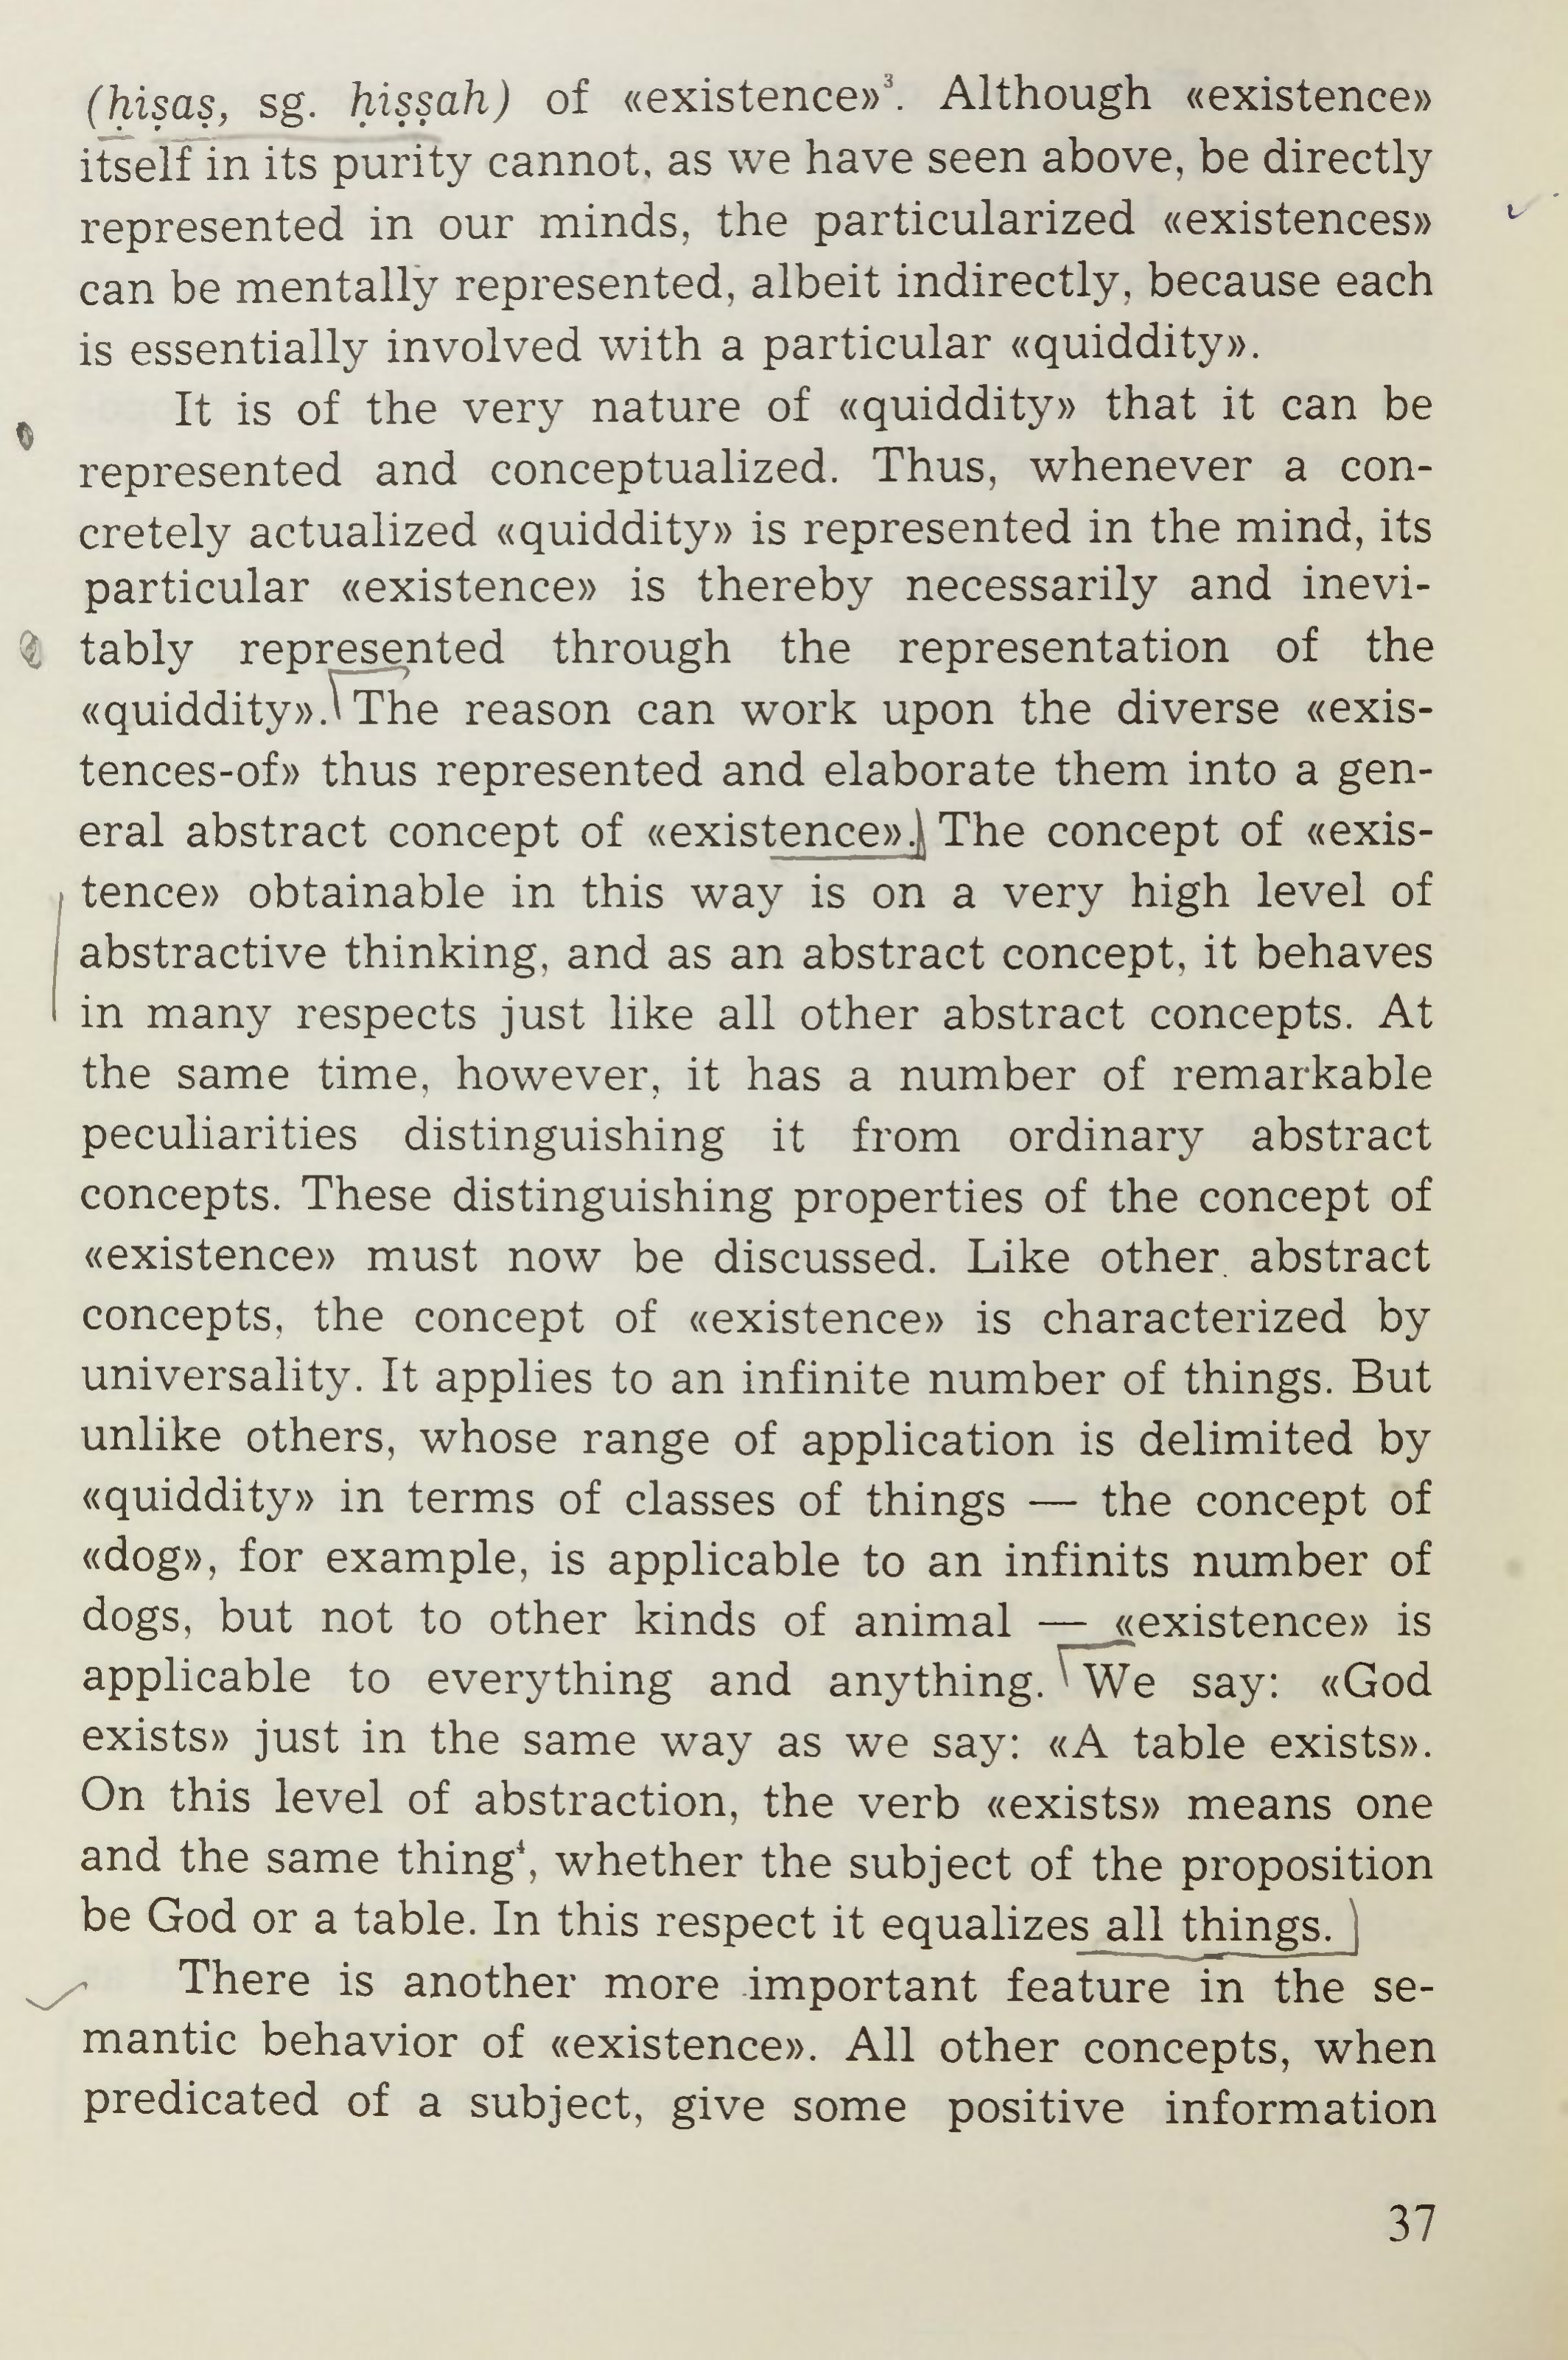 (ḥiṣaṣ, sg. ḥiṣṣah) of «existence»³. Although «existence»
itself in its purity cannot, as we have seen above, be directly
represented in our minds, the particularized «existences»
can be mentally represented, albeit indirectly, because each
is essentially involved with a particular «quiddity».
It is of the very nature of «quiddity» that it can be
represented and conceptualized. Thus, whenever a con-
cretely actualized «quiddity» is represented in the mind, its
particular «existence» is thereby necessarily and inevi-
tably represented through the representation of the
«quiddity». The reason can work upon the diverse «exis-
tences-of» thus represented and elaborate them into a gen-
eral abstract concept of «existence». The concept of «exis-
tence» obtainable in this way is on a very high level of
abstractive thinking, and as an abstract concept, it behaves
in many respects just like all other abstract concepts. At
the same time, however, it has a number of remarkable
peculiarities distinguishing it from ordinary abstract
concepts. These distinguishing properties of the concept of
«existence» must now be discussed. Like other abstract
concepts, the concept of «existence» is characterized by
universality. It applies to an infinite number of things. But
unlike others, whose range of application is delimited by
«quiddity» in terms of classes of things — the concept of
«dog», for example, is applicable to an infinits number of
dogs, but not to other kinds of animal — «existence» is
applicable to everything and anything. We say: «God
exists» just in the same way as we say: «A table exists».
On this level of abstraction, the verb «exists» means one
and the same thing⁴, whether the subject of the proposition
be God or a table. In this respect it equalizes all things.
There is another more important feature in the se-
mantic behavior of «existence». All other concepts, when
predicated of a subject, give some positive information
37